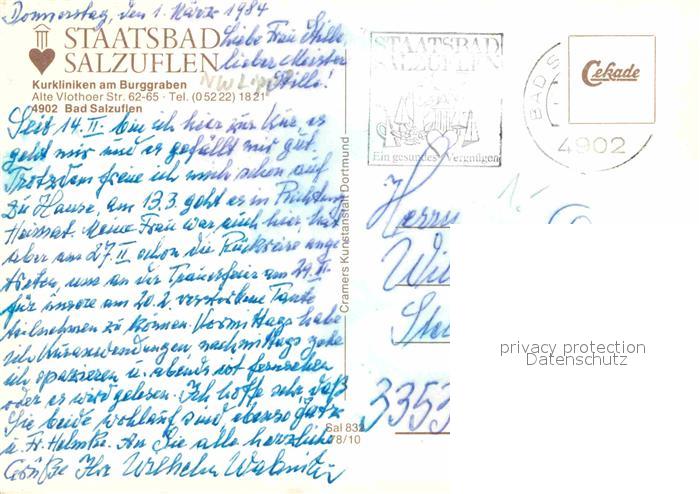 Donnerstag, den 1. März 1984
STAATSBAD
SALZUFLEN
Kurkliniken am Burggraben
Alte Vlothoer Str. 62-65 · Tel. (0 52 22) 18 21
4902 Bad Salzuflen
Liebe Frau Stille,
lieber Meister
Stille!
NW Lippe
Seit 14. II. bin ich hier zur Kur, es
geht mir und es gefällt mir gut.
Trotzdem freue ich mich schon auf
zu Hause, am 13.3. geht es in Richtung
Heimat. Meine Frau war auch hier, hat
aber am 27. II. schon die Rückreise ange
treten, um an der Trauerfeier am 29. II.
für unsere am 20.2 verstorbene Tante
teilnehmen zu können. Vormittags habe
ich Kuranwendungen, nachmittags gehe
ich spazieren u. abends wird fernsehen
oder es wird gelesen. Ich hoffe sehr, daß
Sie beide wohlauf sind ebenso
u. Fr. An Sie alle herzliche
Grüße Ihr Wilhelm
Cramers Kunstanstalt Dortmund
Sal 832
78/10
STAATSBAD
SALZUFLEN
Ein gesundes Vergnügen
BAD S
4902
Cekade
1.-
Herrn
Wil
Ste
3353
privacy protection
Datenschutz